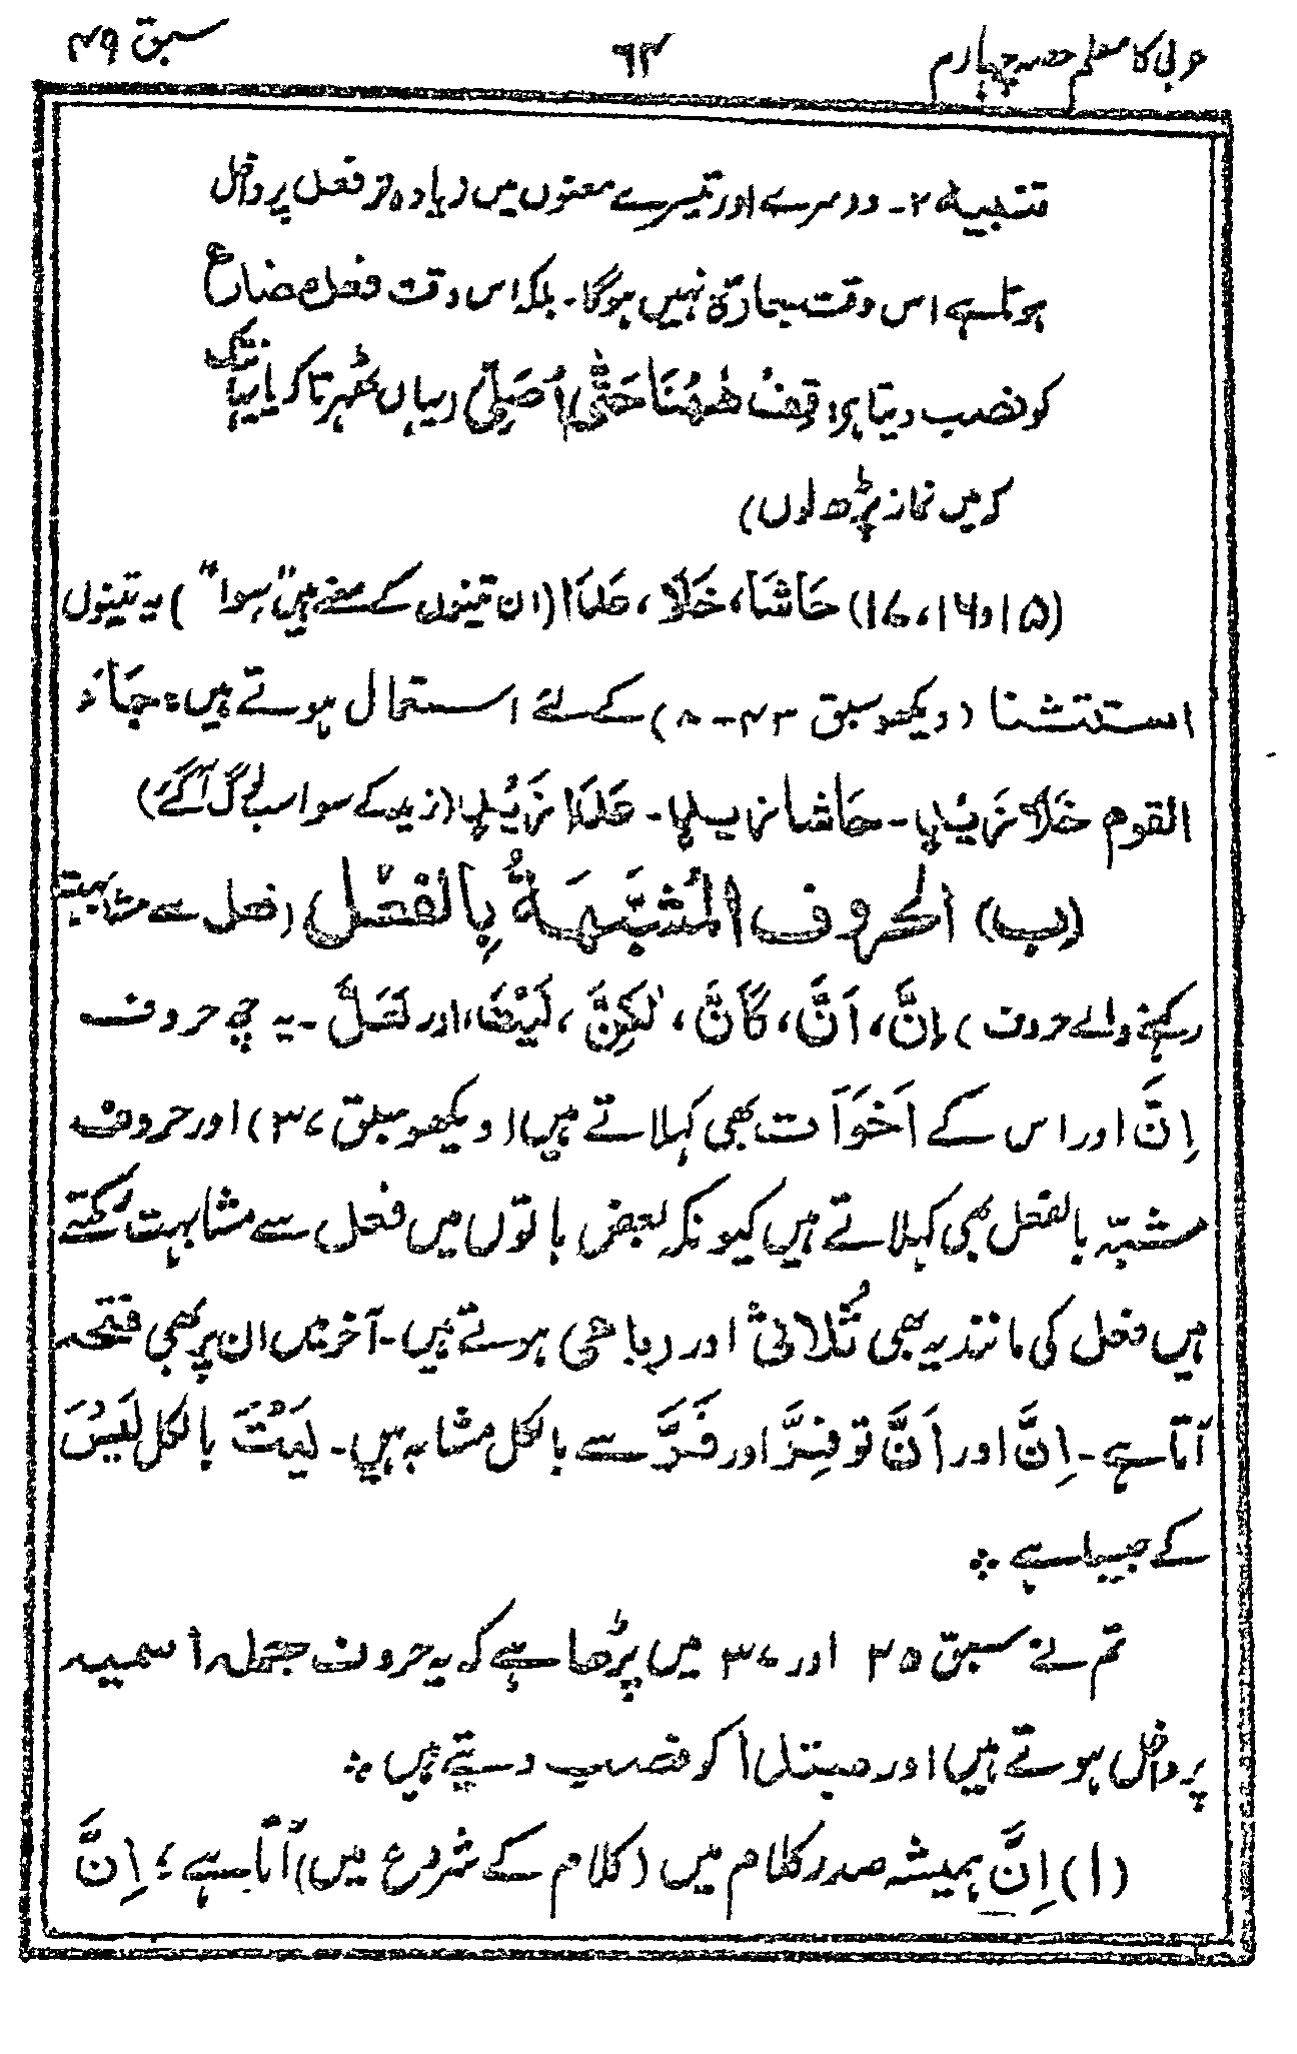 عربی کا معلم حصہ چہارم ۶۴ سبق ۴۹
تنبیہ ۲۔ دوسرے اور تیسرے معنوں میں زیادہ تر فعل پر داخل
ہوتا ہے اس وقت جارّہ نہیں ہوگا۔ بلکہ اس وقت فعل مضارع
کو نصب دیتا ہے: قِفْ هٰهُنَا حَتّٰى اُصَلِّيَ (یہاں ٹھہر تاکہ یا یہاں تک
کہ میں نماز پڑھ لوں)
(۱۵ و ۱۶، ۱۷) حَاشَا، خَلَا، عَدَا (ان تینوں کے معنے ہیں "سِوا") یہ تینوں
استثنا (دیکھو سبق ۴۳-۸) کے لئے استعمال ہوتے ہیں: جَاءَ
القوم خَلَا زَيْدٍ۔ حَاشَا زيدٍ۔ عَدَا زَيْدٍ (زید کے سوا سب لوگ آگئے)
(ب) الحروف المُشَبَّهَةُ بِالفعل (فعل سے مشابہت
رکھنے والے حروف) اِنَّ، اَنَّ، كَاَنَّ، لٰكِنَّ، لَيْتَ، اور لَعَلَّ۔ یہ چھ حروف
اِنَّ اور اس کے اَخَوَات بھی کہلاتے ہیں (دیکھو سبق ۳۷) اور حروف
مشبّہ بالفعل بھی کہلاتے ہیں کیونکہ بعض باتوں میں فعل سے مشابہت رکھتے
ہیں فعل کی مانند یہ بھی ثُلاثی اور رباعی ہوتے ہیں۔ آخر میں ان پر بھی فتحہ
آتا ہے۔ اِنَّ اور اَنَّ تو فِرَّ اور فَرَّ سے بالکل مشابہ ہیں۔ لَیْتَ بالکل لَیْسَ
کے جیسا ہے ؞
تم نے سبق ۲۵ اور ۳۷ میں پڑھا ہے کہ یہ حروف جملہ اسمیہ
پر داخل ہوتے ہیں اور مبتدا کو نصب دیتے ہیں ؞
(۱) اِنَّ ہمیشہ صدر کلام میں (کلام کے شروع میں) آتا ہے: اِنَّ